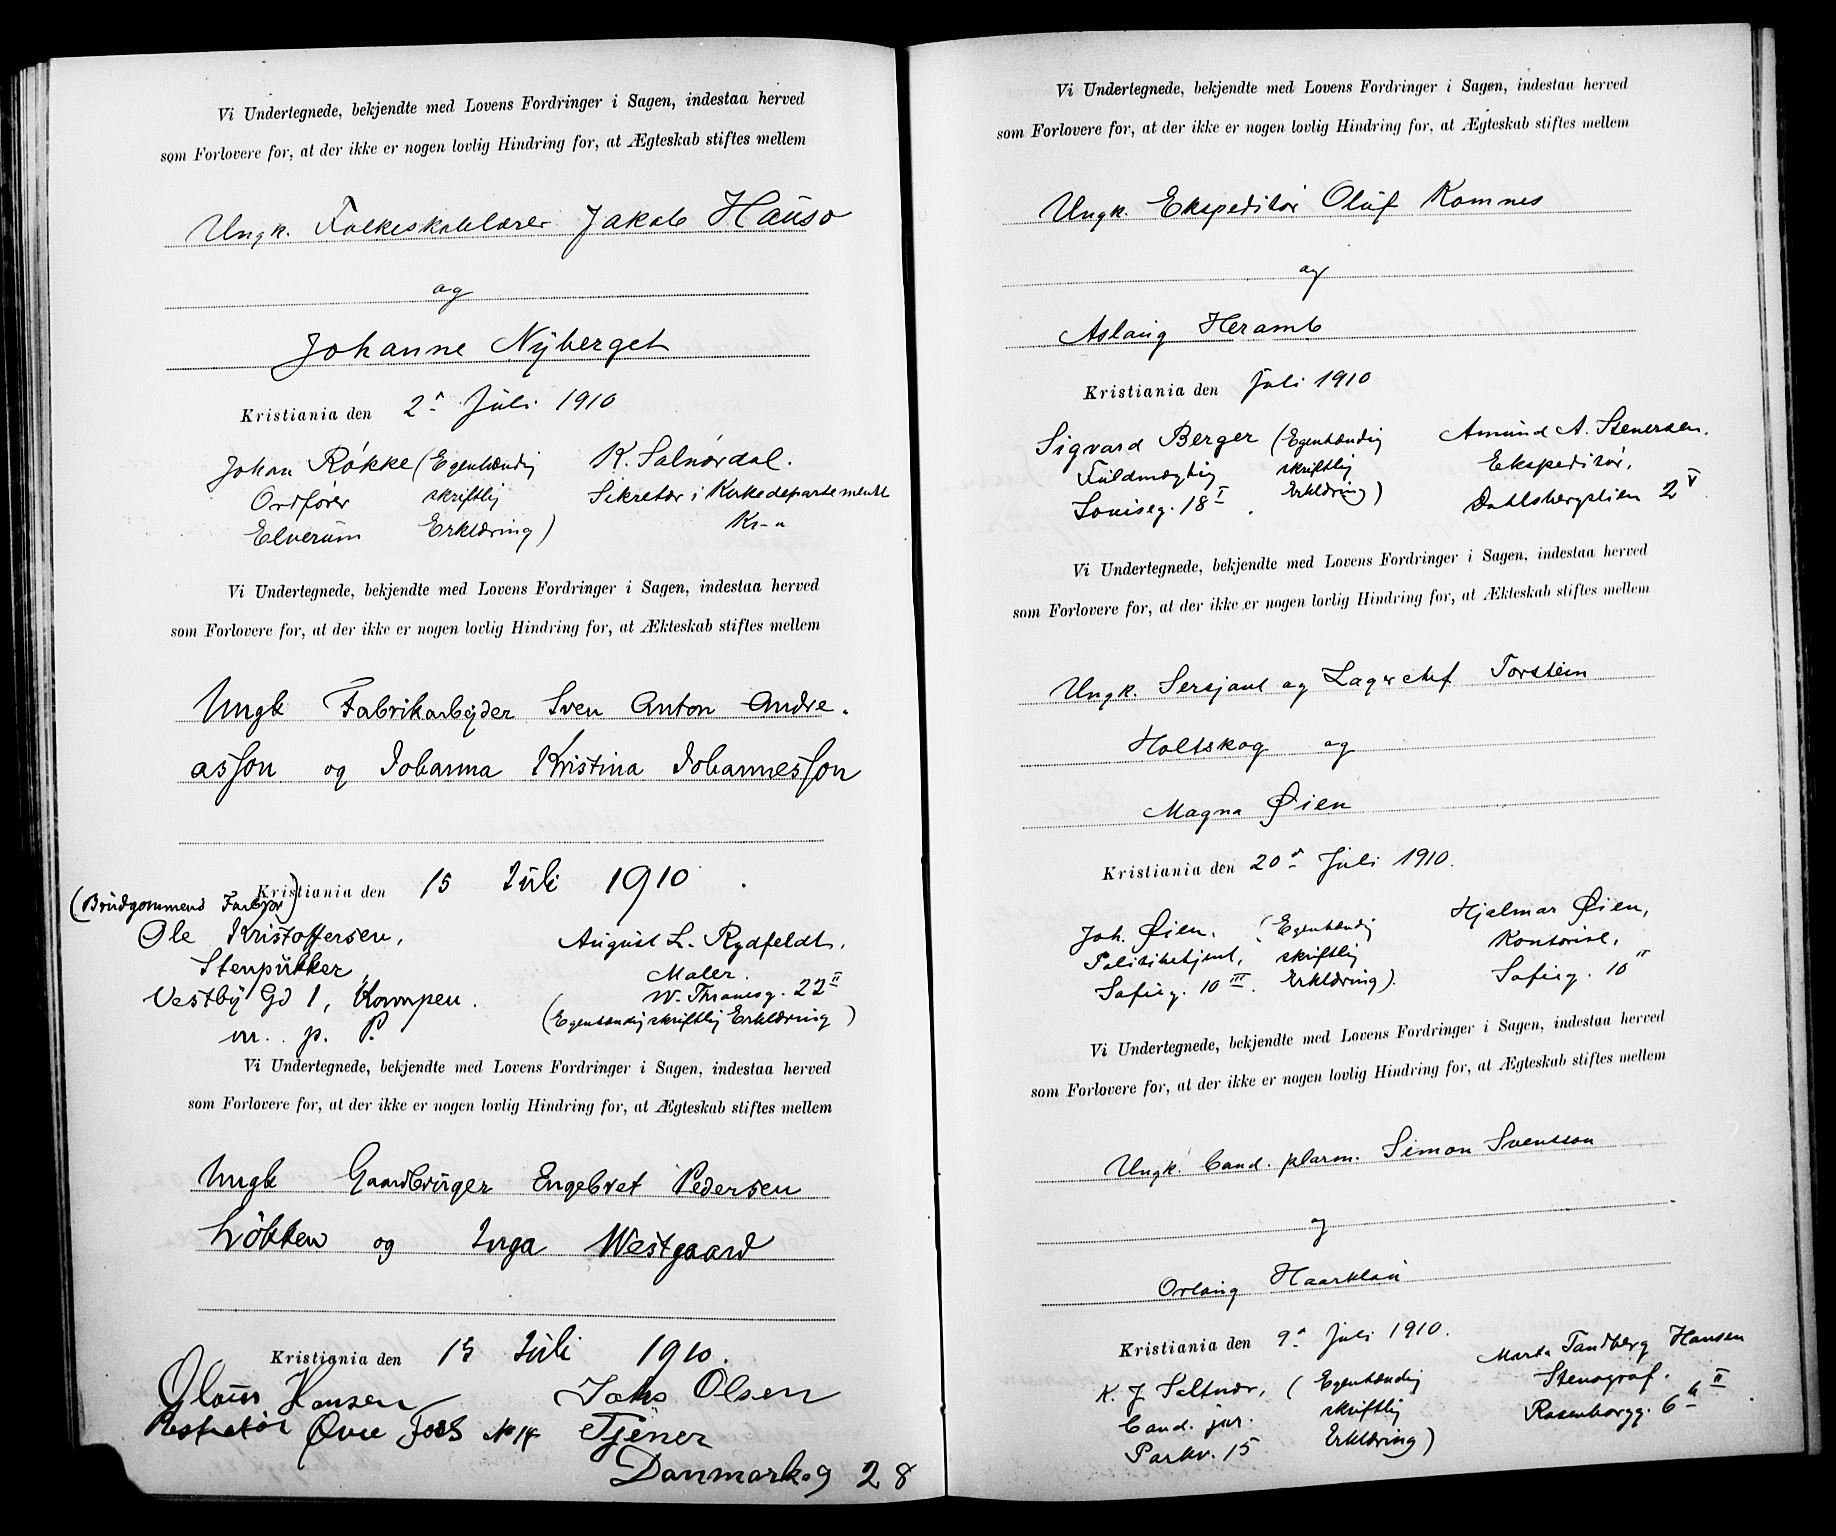 Vi Undertegnede, bekjendte med Lovens Fordringer i Sagen, indestaa herved
som Forlovere for, at der ikke er nogen lovlig Hindring for, at Ægteskab stiftes mellem
Ungk. Folkeskolelærer Jakob Hauso
og
Johanne Nyberget
Kristiania den 2n Juli 1910
Johan Røkke (Egenhændig K. Salnørdal.
Ordfører skriftlig Sekretær i Kirkedepartementet
Elverum Erklæring) Kr-a
Vi Undertegnede, bekjendte med Lovens Fordringer i Sagen, indestaa herved
som Forlovere for, at der ikke er nogen lovlig Hindring for, at Ækteskab stiftes mellem
Ungk Fabrikarbejder Sven Anton Andre-
asson og Johanna Kristina Johannesson
Kristiania den 15 Juli 1910.
(Brudgommens Forlover)
Ole Kristoffersen, August L. Rydfeldt,
Stenpukker Maler.
Vestby Gd 1, Kampen. W. Thranesg. 22 II
m. p. P. (Egenhændig skriftlig Erklæring)
Vi Undertegnede, bekjendte med Lovens Fordringer i Sagen, indestaa herved
som Forlovere for, at der ikke er nogen lovlig Hindring for, at Ægteskab stiftes mellem
Ungk Gaardbruger Engebret Pedersen
Løkken og Inga Westgaard
Kristiania den 15 Juli 1910.
Olaus Hansen Johs Olsen
Øvre Foss No 14 Tjener
Danmarksg 28
Vi Undertegnede, bekjendte med Lovens Fordringer i Sagen, indestaa herved
som Forlovere for, at der ikke er nogen lovlig Hindring for, at Ægteskab stiftes mellem
Ungk. Ekspeditør Oluf Komnes
og
Aslaug Heramb
Kristiania den Juli 1910
Sigvard Berger (Egenhændig Amund A. Stenersen.
Fuldmægtig skriftlig Ekspeditør,
Louiseg. 18 I. Erklæring) Dahlsbergstien 2 V
Vi Undertegnede, bekjendte med Lovens Fordringer i Sagen, indestaa herved
som Forlovere for, at der ikke er nogen lovlig Hindring for, at Ækteskab stiftes mellem
Ungk. Sersjant og Lagerchef Torstein
Holtskog og
Magna Øien
Kristiania den 20d Juli 1910.
Joh. Øien. (Egenhændig Hjalmar Øien,
Politibetjent, skriftlig Kontorist,
Sofieg. 10 III. Erklæring). Sofieg. 10 II
Vi Undertegnede, bekjendte med Lovens Fordringer i Sagen, indestaa herved
som Forlovere for, at der ikke er nogen lovlig Hindring for, at Ægteskab stiftes mellem
Ungk. Cand. pharm. Simon Svensson
og
Orlaug Haarklau
Kristiania den 9d Juli 1910.
K. J. Saltnær, (Egenhændig Marta Tandberg Hansen
Cand. jur. skriftlig Stenograf.
Parkv. 15 Erklæring) Rosenborgg. 6 b II